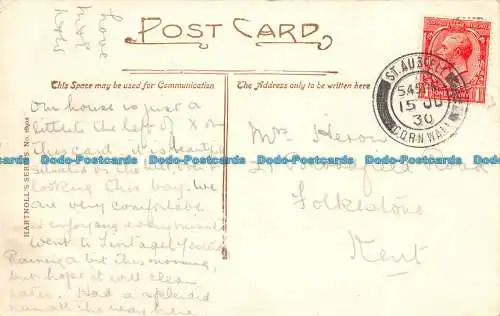 POST CARD
This Space may be used for Communication
The Address only to be written here
HARTNOLL'S SERIES. No.
Our house is just a
little to the left of X on
this card. it is beautifully
situated on the hill over
looking this bay. We
are very comfortable
& enjoying every minute
went to Tintagel yesterday
Raining a bit this morning,
but hope it will clear
later. Had a splendid
run all the way here
Love
ST. AUSTELL
5 45 PM
15 JU
30
CORNWALL
ONE PENNY
Mrs Heron
Road
Folkestone
Kent
Dodo-Postcards Dodo-Postcards Dodo-Postcards Dodo-Postcards Dodo-Postcards